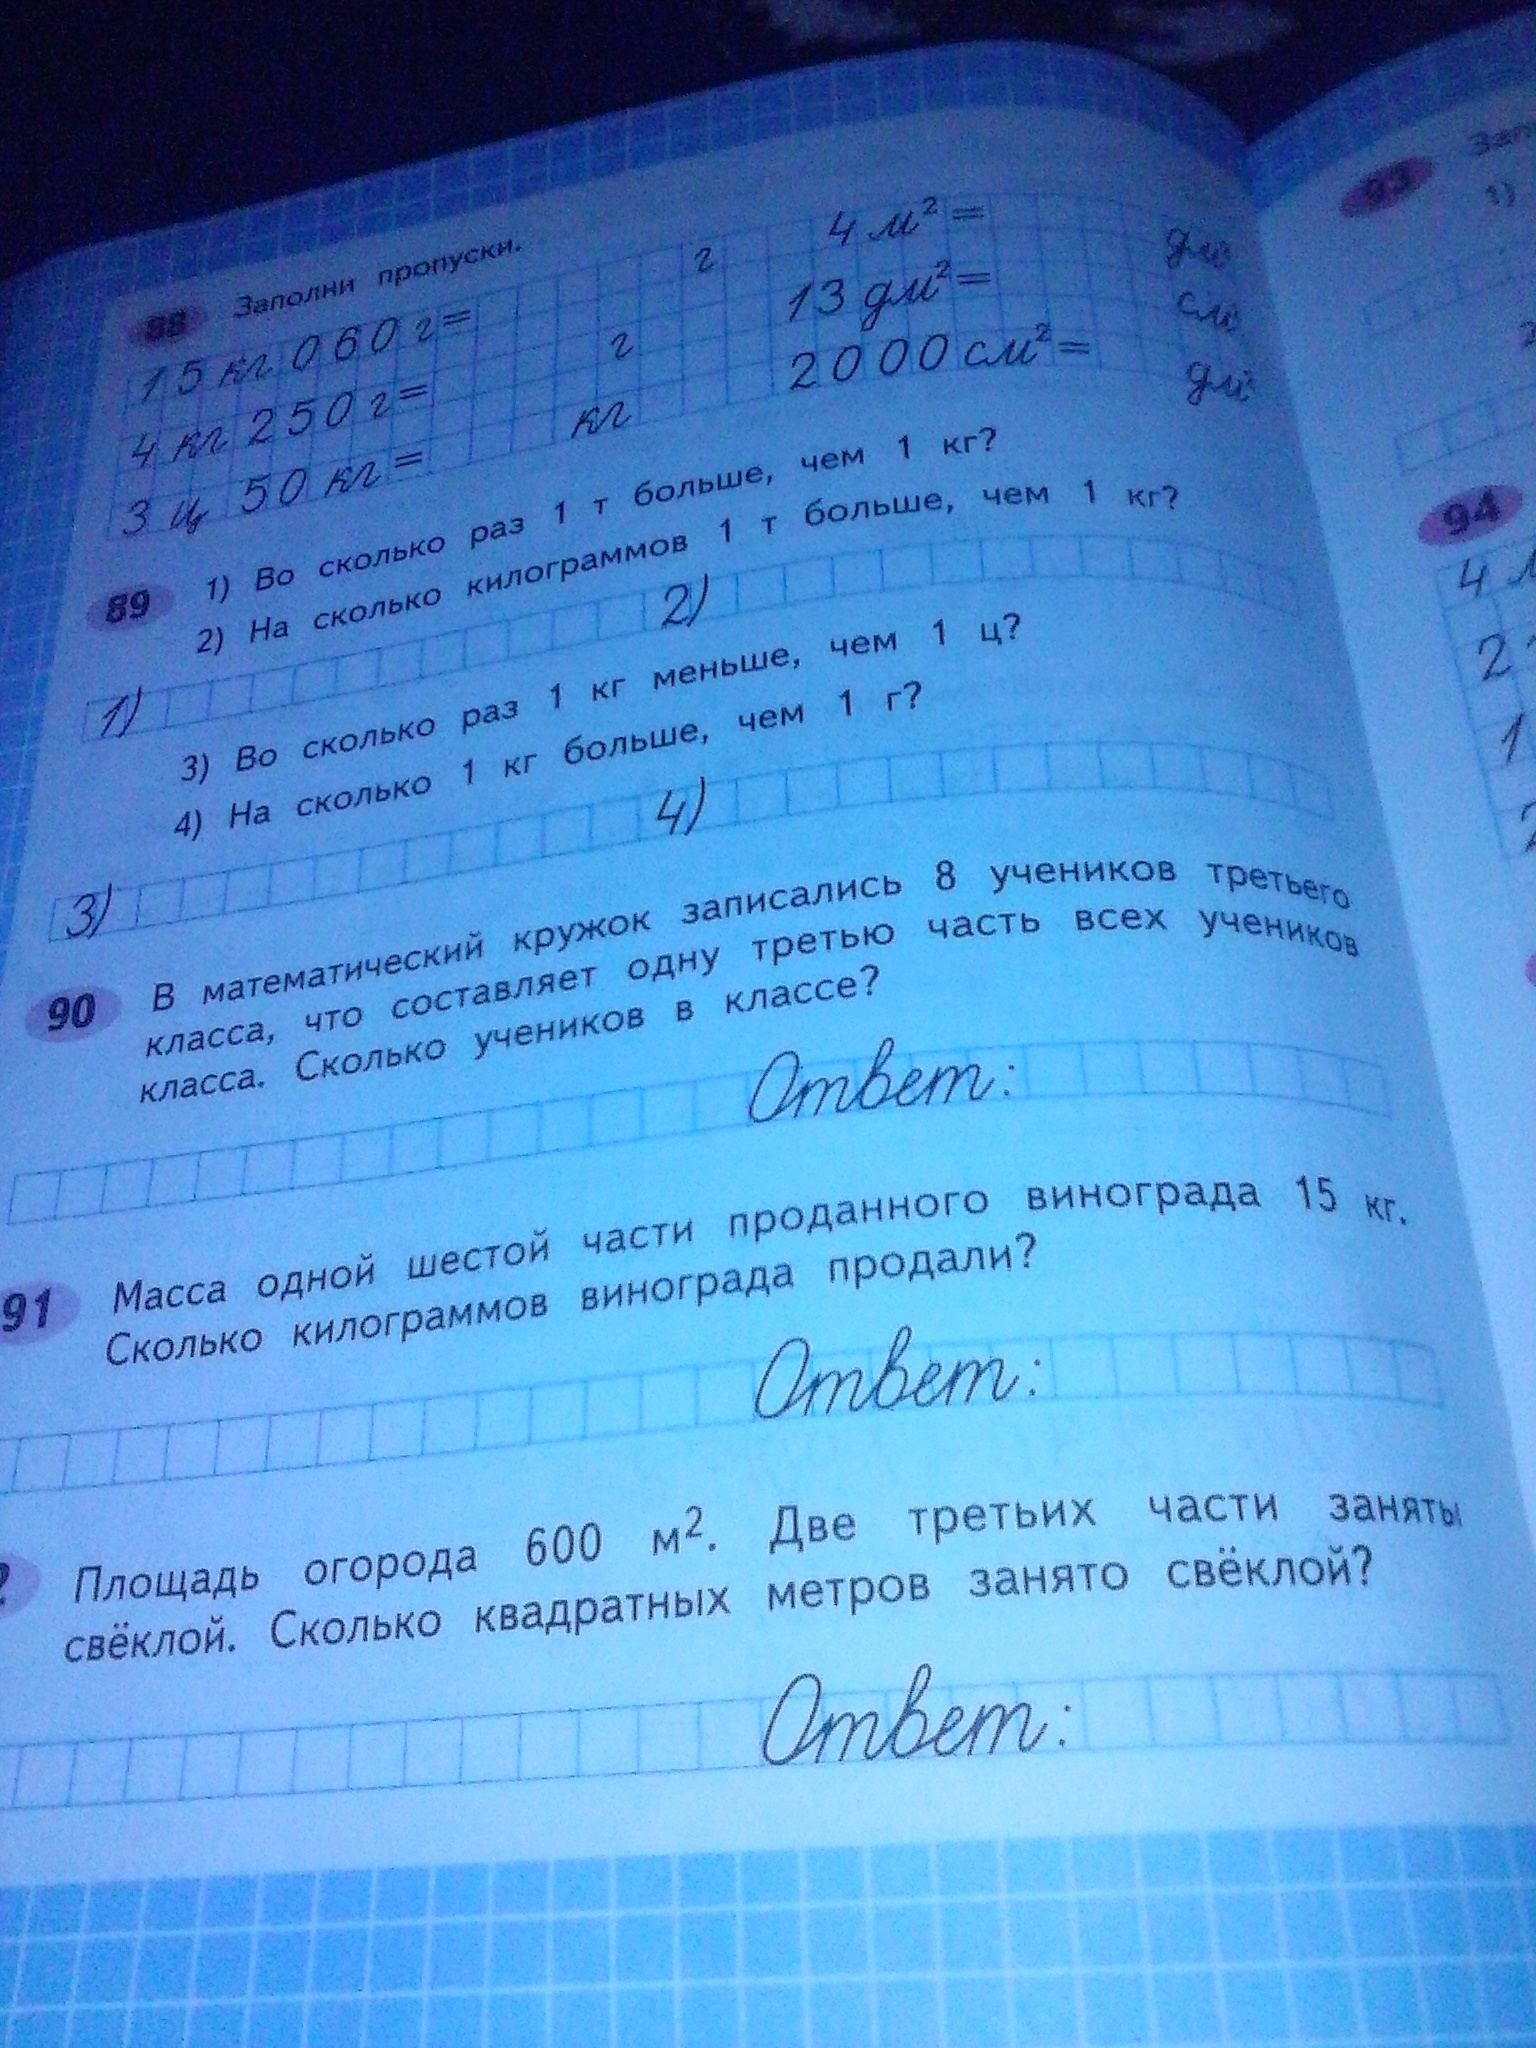 88 Заполни пропуски.
15 кг 060 г = г 4 м² = дм²
4 кг 250 г = г 13 дм² = см²
3 ц 50 кг = кг 2000 см² = дм²
89 1) Во сколько раз 1 т больше, чем 1 кг?
2) На сколько килограммов 1 т больше, чем 1 кг?
1) 2)
3) Во сколько раз 1 кг меньше, чем 1 ц?
4) На сколько 1 кг больше, чем 1 г?
3) 4)
90 В математический кружок записались 8 учеников третьего
класса, что составляет одну третью часть всех учеников
класса. Сколько учеников в классе?
Ответ:
91 Масса одной шестой части проданного винограда 15 кг.
Сколько килограммов винограда продали?
Ответ:
Площадь огорода 600 м². Две третьих части заняты
свёклой. Сколько квадратных метров занято свёклой?
Ответ:
93
1)
94
4
2
1
2